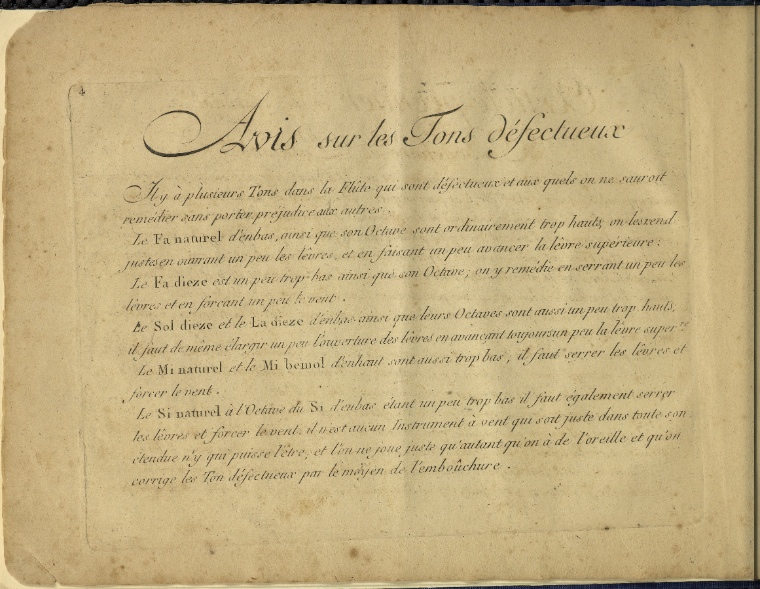 4
Avis sur les Tons défectueux
Il y à plusieurs Tons dans la Flûte qui sont défectueux et aux quels on ne sauroit
remedier sans porter préjudice aux autres.
Le Fa naturel d'enbas, ainsi que son Octave sont ordinairement trop hauts, on les rend
justes en ouvrant un peu les lévres, et en faisant un peu avancer la lévre superieure:
Le Fa dieze est un peu trop bas ainsi que son Octave; on y remédie en serrant un peu les
lévres et en forcant un peu le vent.
Le Sol dieze et le La dieze d'enbas ainsi que leurs Octaves sont aussi un peu trop hauts,
il faut de même élargir un peu l'ouverture des lévres en avancant toujours un peu la lévre super.re
Le Mi naturel et le Mi bemol d'enhaut sont aussi trop bas, il faut serrer les lévres et
forcer le vent.
Le Si naturel à l'Octave du Si d'enbas étant un peu trop bas il faut également serrer
les lévres et forcer le vent. il n'est aucun Instrument à vent qui soit juste dans toute son
étendue n'y qui puisse l'être, et l'on ne joue juste qu'autant qu'on à de l'oreille et qu'on
corrige les Ton défectueux par le moyen de l'emboûchure.